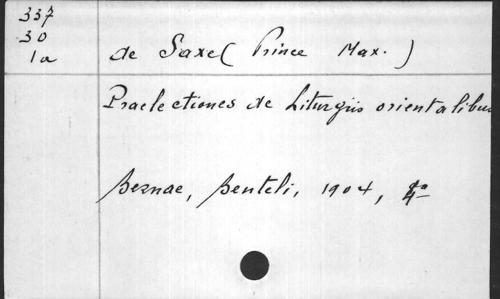 337
30
1a
de Saxe ( Prince Max. )
Praelectiones de Liturgiis orientalibus
Bernae, Benteli, 1904, 4°